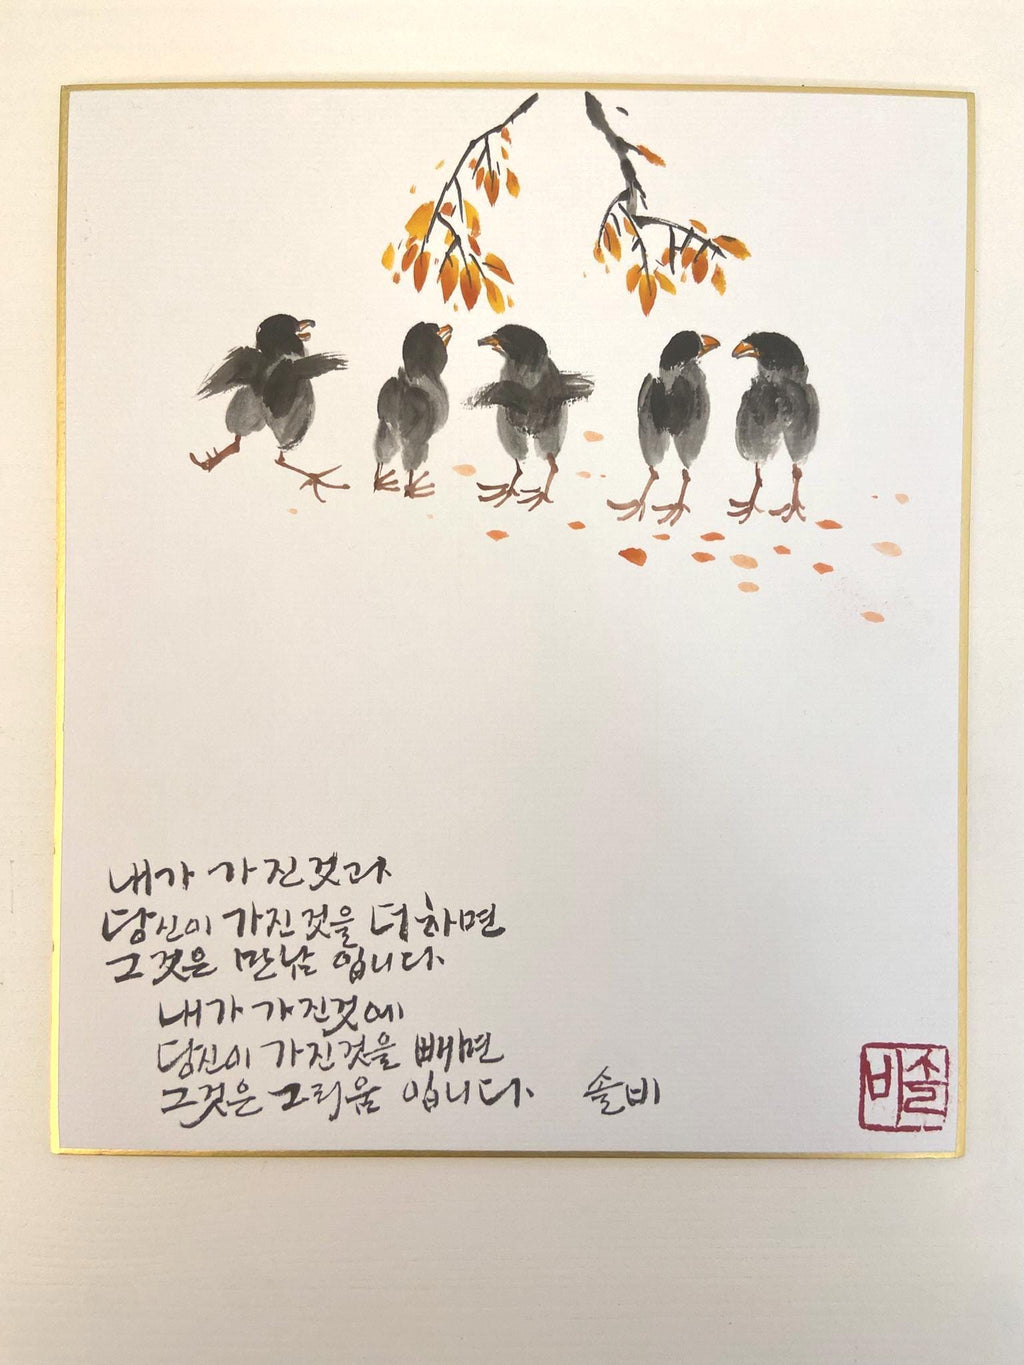 내가 가진것과
당신이 가진것을 더하면
그것은 만남 입니다.
내가 가진것에
당신이 가진것을 빼면
그것은 그리움 입니다. 솔비
솔비